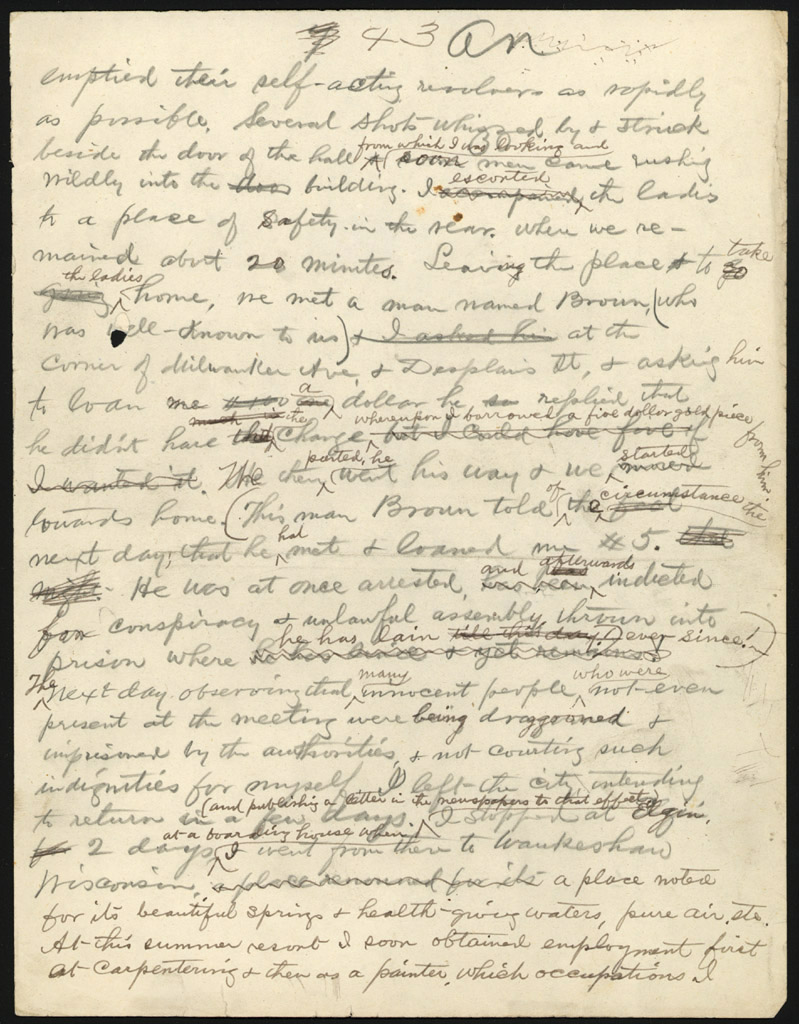 43 An
emptied their self-acting revolvers as rapidly
as possible. Several shots whizzed by & struck
beside the door of the hall from which I was looking and
soon men came rushing
wildly into the door building. I accompanied escorted the ladies
to a place of safety in the rear, where we re-
mained about 20 minutes. Leaving the place to go take
going the ladies home, we met a man named Brown, (who
was well-known to us) & I asked him at the
corner of Milwaukee Ave, & Desplains St, & asking him
to loan me a dollar he replied that
he didn't have the change, whereupon I borrowed a five dollar gold piece from him.
but I could have five if
I wanted it. We then parted, he went his way & we moved started
towards home. (This man Brown told of the fact circumstance the
next day; that he had met & loaned me $5. that
He was at once arrested, has been and afterwards indicted
for conspiracy & unlawful assembly, thrown into
prison where he has lain till this day. ever since!)
The next day observing that many innocent people, who were not even
present at the meeting were being dragooned &
imprisoned by the authorities, & not courting such
indignities for myself I left the city, intending
to return in a few days. (and publishing a letter in the newspapers to that effect) I stopped at Elgin,
2 days at a boarding house when I went from there to Waukeshaw
Wisconsin, a place renowned for its a place noted
for its beautiful springs & health-giving waters, pure air, etc.
At this summer resort I soon obtained employment first
at carpentering & then as a painter, which occupations I